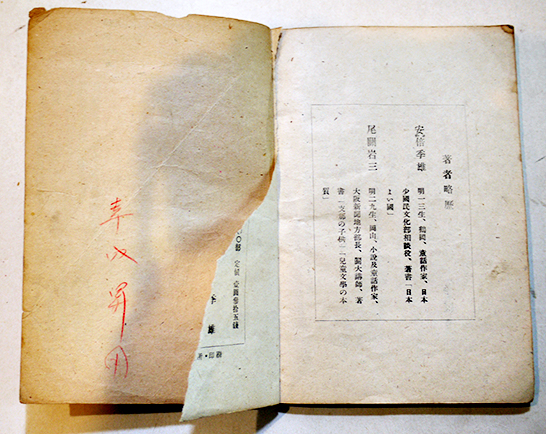 著者略歴
安倍季雄
明一三生、鶴岡、童話作家、日本
少國民文化部相談役、著書「日本
よい國」
尾關岩三
明二九生、岡山、小說及童話作家、
大阪新聞地方部長、關大講師、著
書「支那の子供」「兒童文學の本
質」
〇部 定價 壹圓參拾五錢
季雄